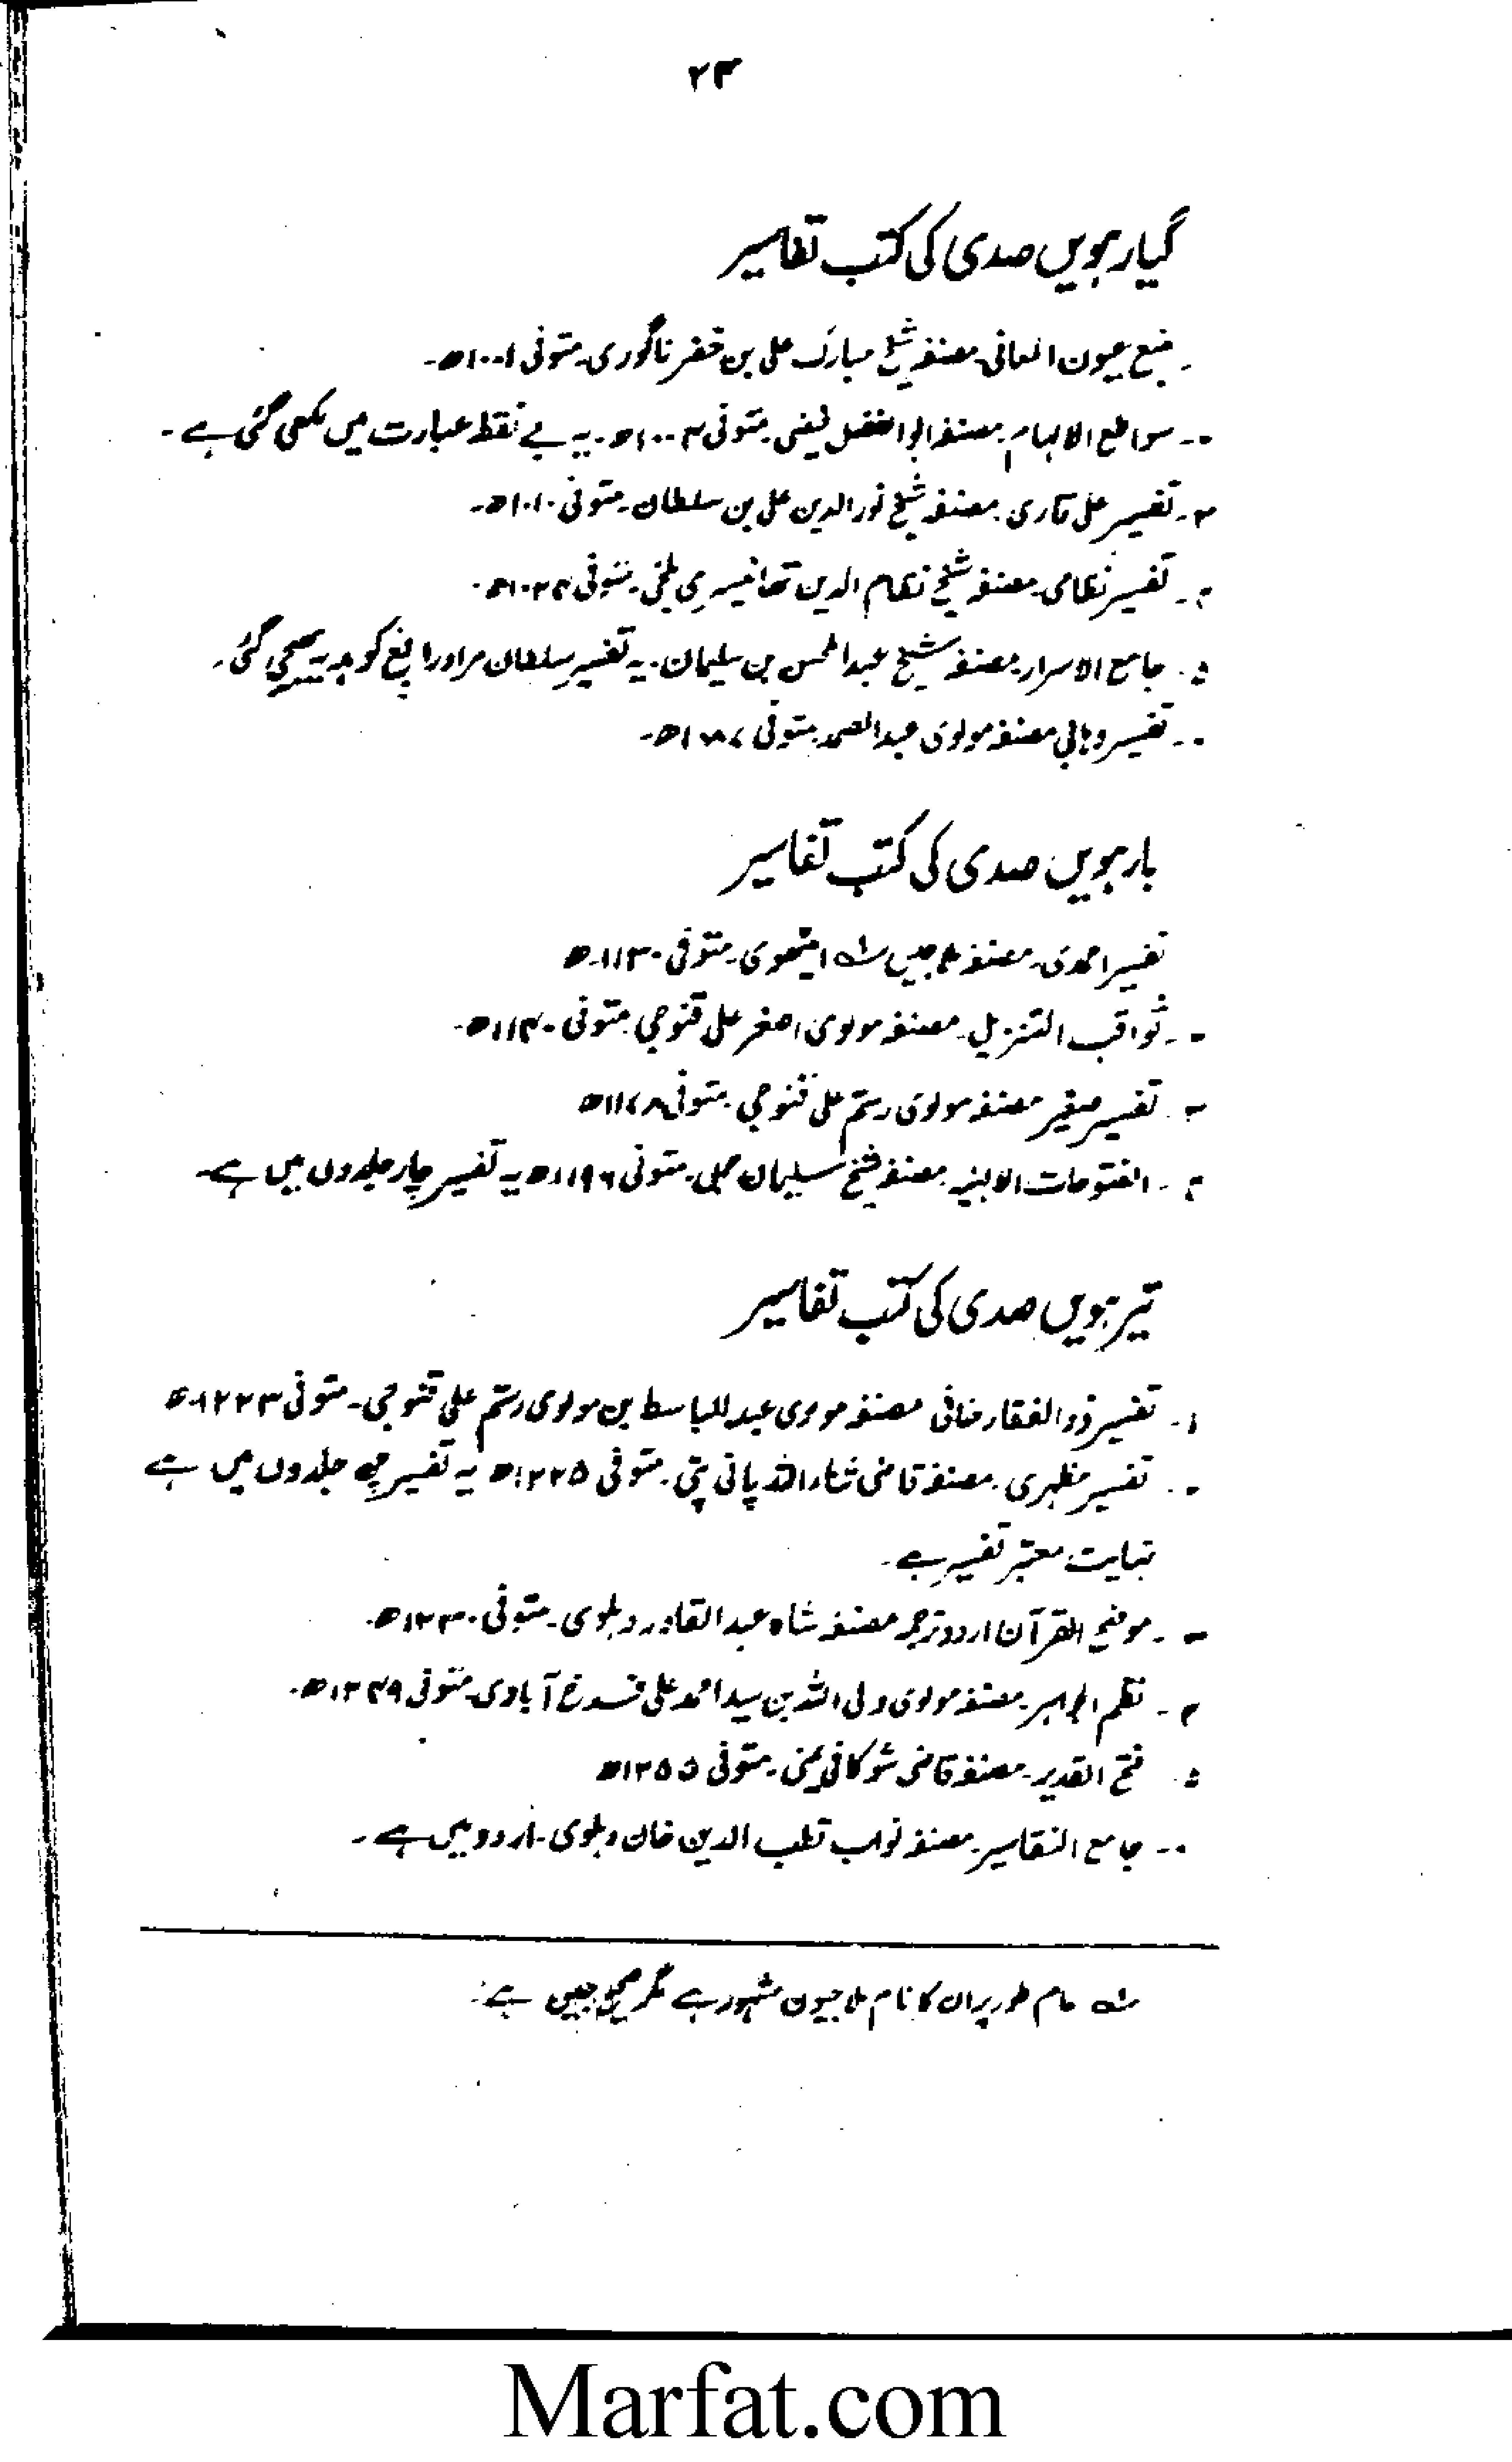 ۲۳
گیارہویں صدی کی کتب تفاسیر
منبع عیون المعانی۔ مصنفہ شیخ مبارک علی بن خضر ناگوری۔ متوفی ۱۰۰۱ھ۔
۔ سواطع الالہام۔ مصنفہ ابوالفضل فیضی۔ متوفی ۱۰۰۴ھ۔ یہ بے نقط عبارت میں لکھی گئی ہے۔
۳۔ تفسیر علی قاری۔ مصنفہ شیخ نورالدین علی بن سلطان۔ متوفی ۱۰۱۰ھ۔
۴۔ تفسیر نظامی۔ مصنفہ شیخ نظام الدین تھانیسری بلخی۔ متوفی ۱۰۲۴ھ۔
۵۔ جامع الاسرار۔ مصنفہ شیخ عبدالمحسن بن سلیمان۔ یہ تفسیر سلطان مراد رابع کو ہدیہ بھیجی گئی۔
۔ تفسیر وہابی مصنفہ مولوی عبدالصمد۔ متوفی ۱۰۸۷ھ۔
بارہویں صدی کی کتب تفاسیر
تفسیر احمدی۔ مصنفہ ملا جیین لہ امیٹھوی۔ متوفی ۱۱۳۰ھ
۔ ثواقب التنزیل۔ مصنفہ مولوی اصغر علی قنوجی۔ متوفی ۱۱۴۰ھ۔
۳۔ تفسیر صغیر مصنفہ مولوی رستم علی قنوجی۔ متوفی ۱۱۷۸ھ
۴۔ الفتوحات الالہیہ۔ مصنفہ شیخ سلیمان جملی۔ متوفی ۱۱۹۶ھ یہ تفسیر چار جلدوں میں ہے۔
تیرہویں صدی کی کتب تفاسیر
۱۔ تفسیر ذوالفقار خانی مصنفہ مولوی عبدالباسط بن مولوی رستم علی قنوجی۔ متوفی ۱۲۲۳ھ
۔ تفسیر مظہری۔ مصنفہ قاضی ثناءاللہ پانی پتی۔ متوفی ۱۲۲۵ھ یہ تفسیر چھ جلدوں میں ہے
نہایت معتبر تفسیر ہے۔
۳۔ موضح القرآن اردو ترجمہ مصنفہ شاہ عبدالقادر دہلوی۔ متوفی ۱۲۳۰ھ۔
۴۔ نظم الجواہر۔ مصنفہ مولوی ولی اللہ بن سید احمد علی فرخ آبادی۔ متوفی ۱۲۴۹ھ۔
۵۔ فتح القدیر۔ مصنفہ قاضی شوکانی یمنی۔ متوفی ۱۲۵۵ھ
۔ جامع التفاسیر۔ مصنفہ نواب قطب الدین خان دہلوی۔ اردو میں ہے۔
لہ عام طور پر ان کا نام ملا جیون مشہور ہے مگر صحیح جیین ہے۔
Marfat.com